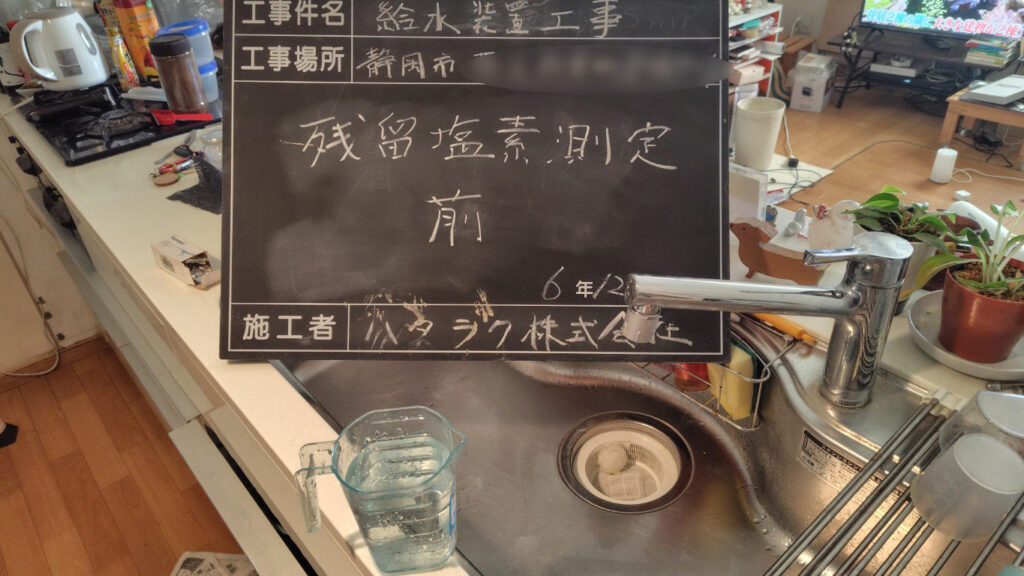 工事件名 給水装置工事
工事場所 静岡市
残留塩素測定
前
6年12
施工者 ハタジク株式会社